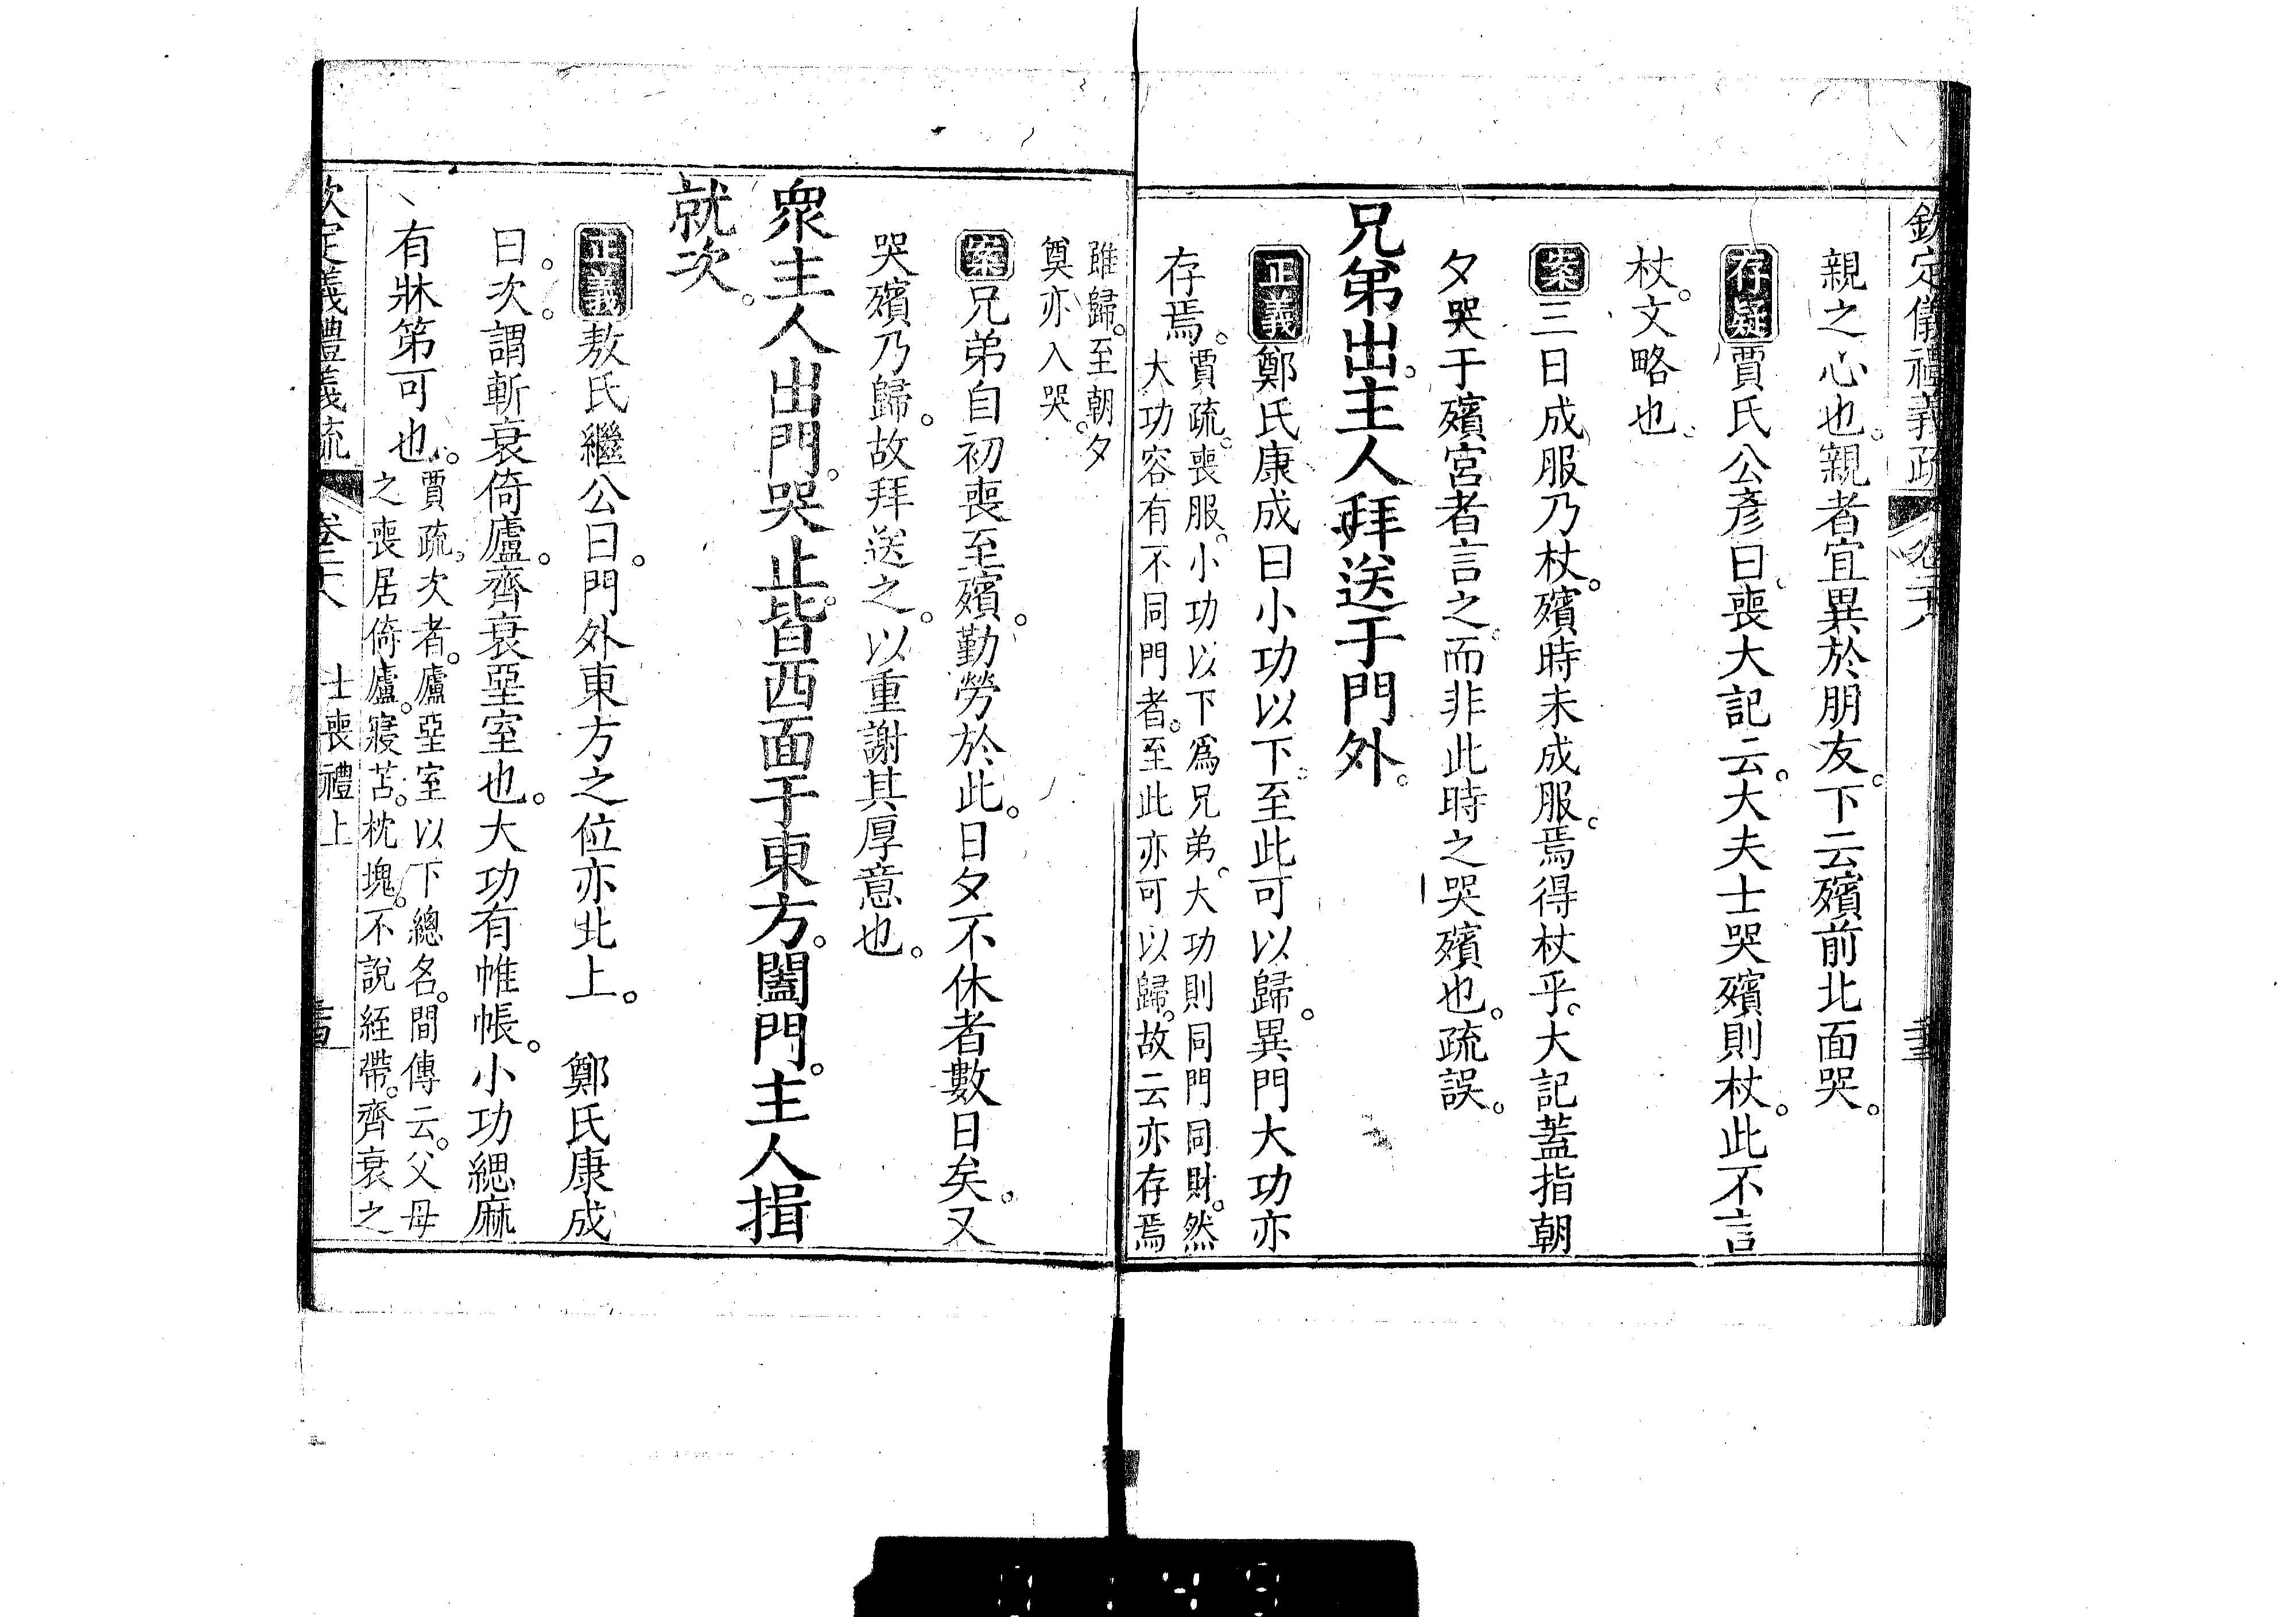 欽定儀禮義疏 卷二十八
親之心也。親者宜異於朋友。下云殯前北面哭。
存疑 賈氏公彥曰。喪大記云。大夫士哭殯則杖。此不言
杖。文略也。
案 三日成服乃杖。殯時未成服。焉得杖乎。大記蓋指朝
夕哭于殯宮者言之。而非此時之哭殯也。疏誤。
兄弟出。主人拜送于門外。
正義 鄭氏康成曰小功以下。至此可以歸。異門大功亦
存焉。
賈疏。喪服。小功以下爲兄弟。大功則同門同財。然
大功容有不同門者。至此亦可以歸。故云亦存焉
雖歸。至朝夕
奠亦入哭。
案 兄弟自初喪至殯。勤勞於此。日夕不休者數日矣。又
哭殯乃歸。故拜送之。以重謝其厚意也。
眾主人出門。哭止。皆西面于東方。闔門。主人揖
就次。
正義 敖氏繼公曰。門外東方之位亦北上。 鄭氏康成
曰。次。謂斬衰倚廬。齊衰堊室也。大功有帷帳。小功緦麻
有牀第可也。
賈疏。次者。廬堊室以下總名。間傳云。父母
之喪居倚廬。寢苫。枕塊。不說絰帶。齊衰之
欽定儀禮義疏 卷二十八 士喪禮上